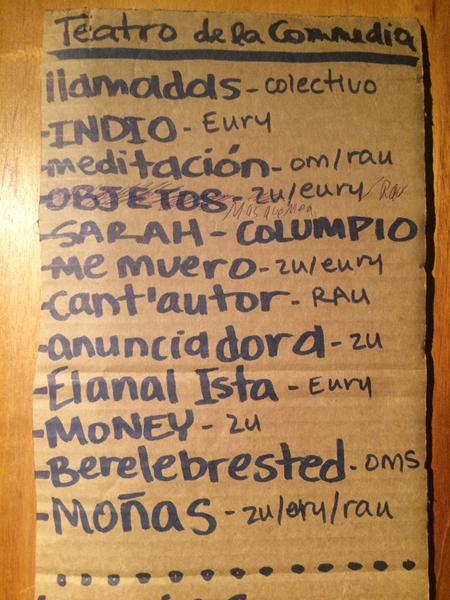 Teatro de la Commedia
llamadas - colectivo
-INDIO - Eury
-meditación - om/rau
-OBJETOS - zu/eury/Rau
-SARAH - COLUMPIO
-me muero - zu/eury
-cant'autor - RAU
-anunciadora - zu
-Elanal Ista - Eury
-MONEY - zu
-Berelebrested - oms
-Moñas - zu/eury/rau